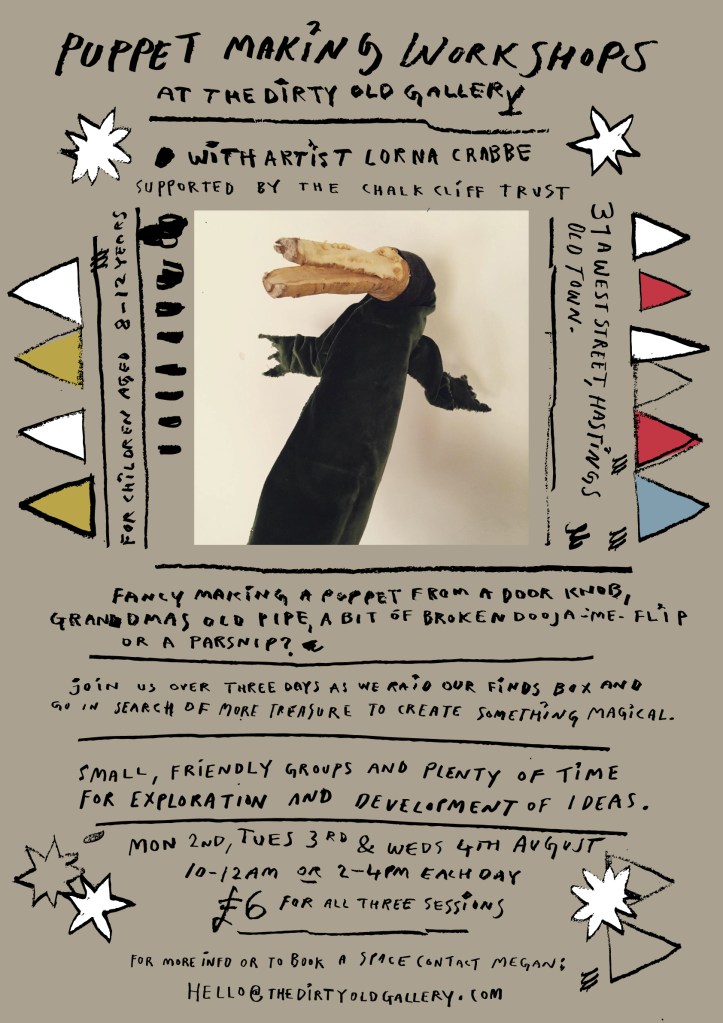 PUPPET MAKING WORKSHOPS
AT THE DIRTY OLD GALLERY
WITH ARTIST LORNA CRABBE
SUPPORTED BY THE CHALK CLIFF TRUST
FOR CHILDREN AGED 8-12 YEARS
37A WEST STREET, HASTINGS
OLD TOWN.
FANCY MAKING A PUPPET FROM A DOOR KNOB,
GRANDDMAS OLD PIPE, A BIT OF BROKEN DOOJA-ME-FLIP
OR A PARSNIP?
JOIN US OVER THREE DAYS AS WE RAID OUR FINDS BOX AND
GO IN SEARCH OF MORE TREASURE TO CREATE SOMETHING MAGICAL.
SMALL, FRIENDLY GROUPS AND PLENTY OF TIME
FOR EXPLORATION AND DEVELOPMENT OF IDEAS.
MON 2ND, TUES 3RD & WEDS 4TH AUGUST
10-12AM OR 2-4PM EACH DAY
£6 FOR ALL THREE SESSIONS
FOR MORE INFO OR TO BOOK A SPACE CONTACT MEGAN:
HELLO@THEDIRTYOLDGALLERY.COM